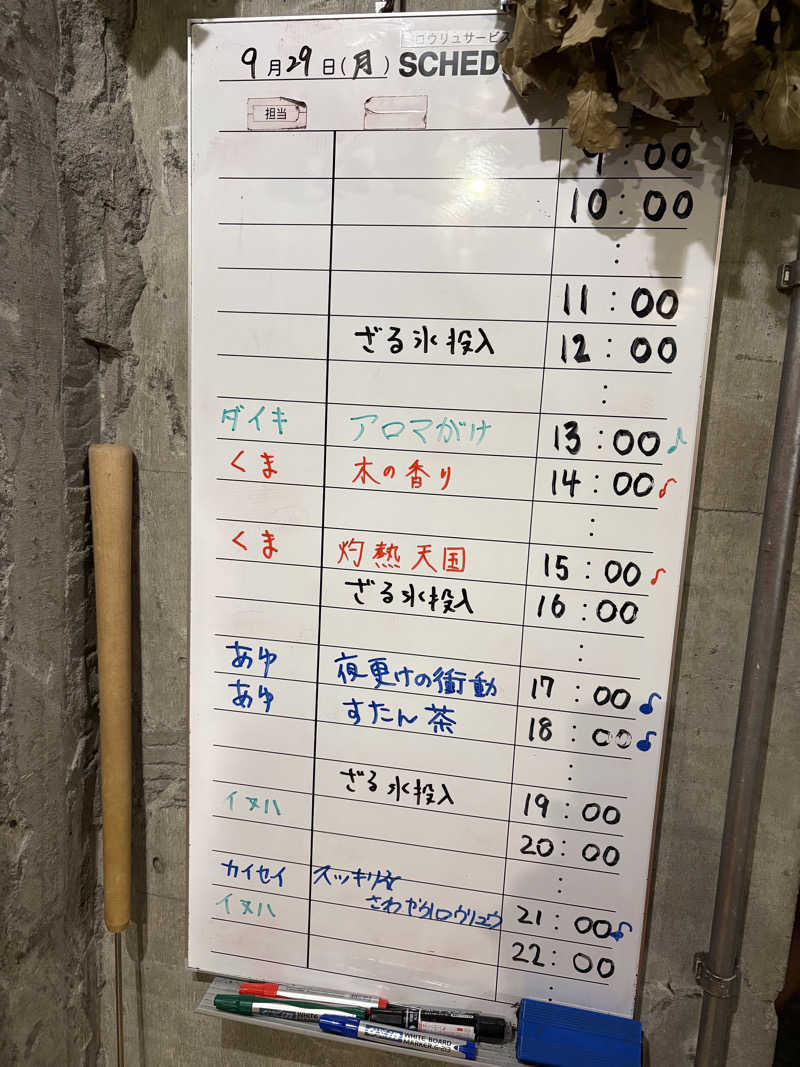 ロウリュサービス
9月29日(月) SCHED
担当
9:00
10:00
:
11:00
ざる氷投入 12:00
:
ダイキ アロマがけ 13:00♪
くま 木の香り 14:00♪
:
くま 灼熱天国 15:00♪
ざる氷投入 16:00
:
あゆ 夜更けの衝動 17:00♪
あゆ すたん茶 18:00♪
:
ざる氷投入
イヌハ 19:00
20:00
:
カイセイ スッキリ
イヌハ さわやかロウリュウ 21:00♪
22:00
:
WHITE BOARD
MARKER